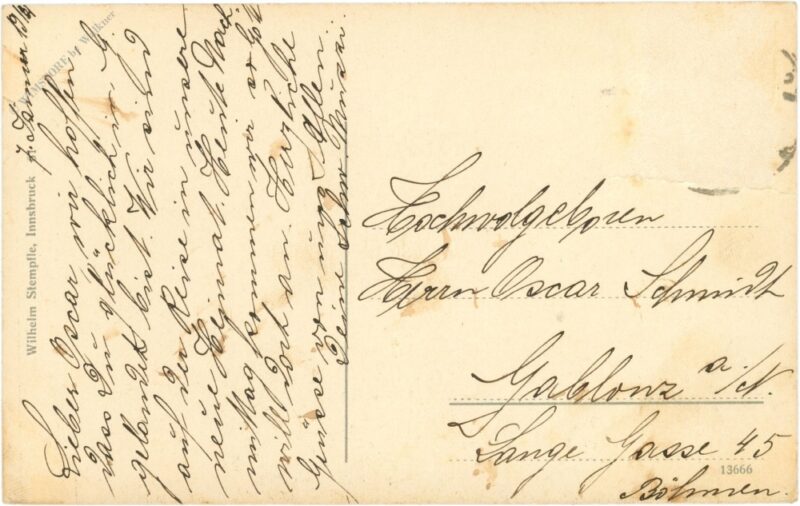 7. Jänner 19
Lieber Oscar wir hoffen
dass Du glücklich in G.
gelandet bist. Wir sind
auf der Reise in unsere
neue Heimat. Heute Nach
mittag kommen wir so Gott
will dort an. Herzliche
Grüsse von uns Allen.
Deine Schw.
Wilhelm Stempfle, Innsbruck
Hochwolgeboren
Herrn Oscar Schmidt
Gablonz a/N.
Lange Gasse 45
13666
Böhmen.